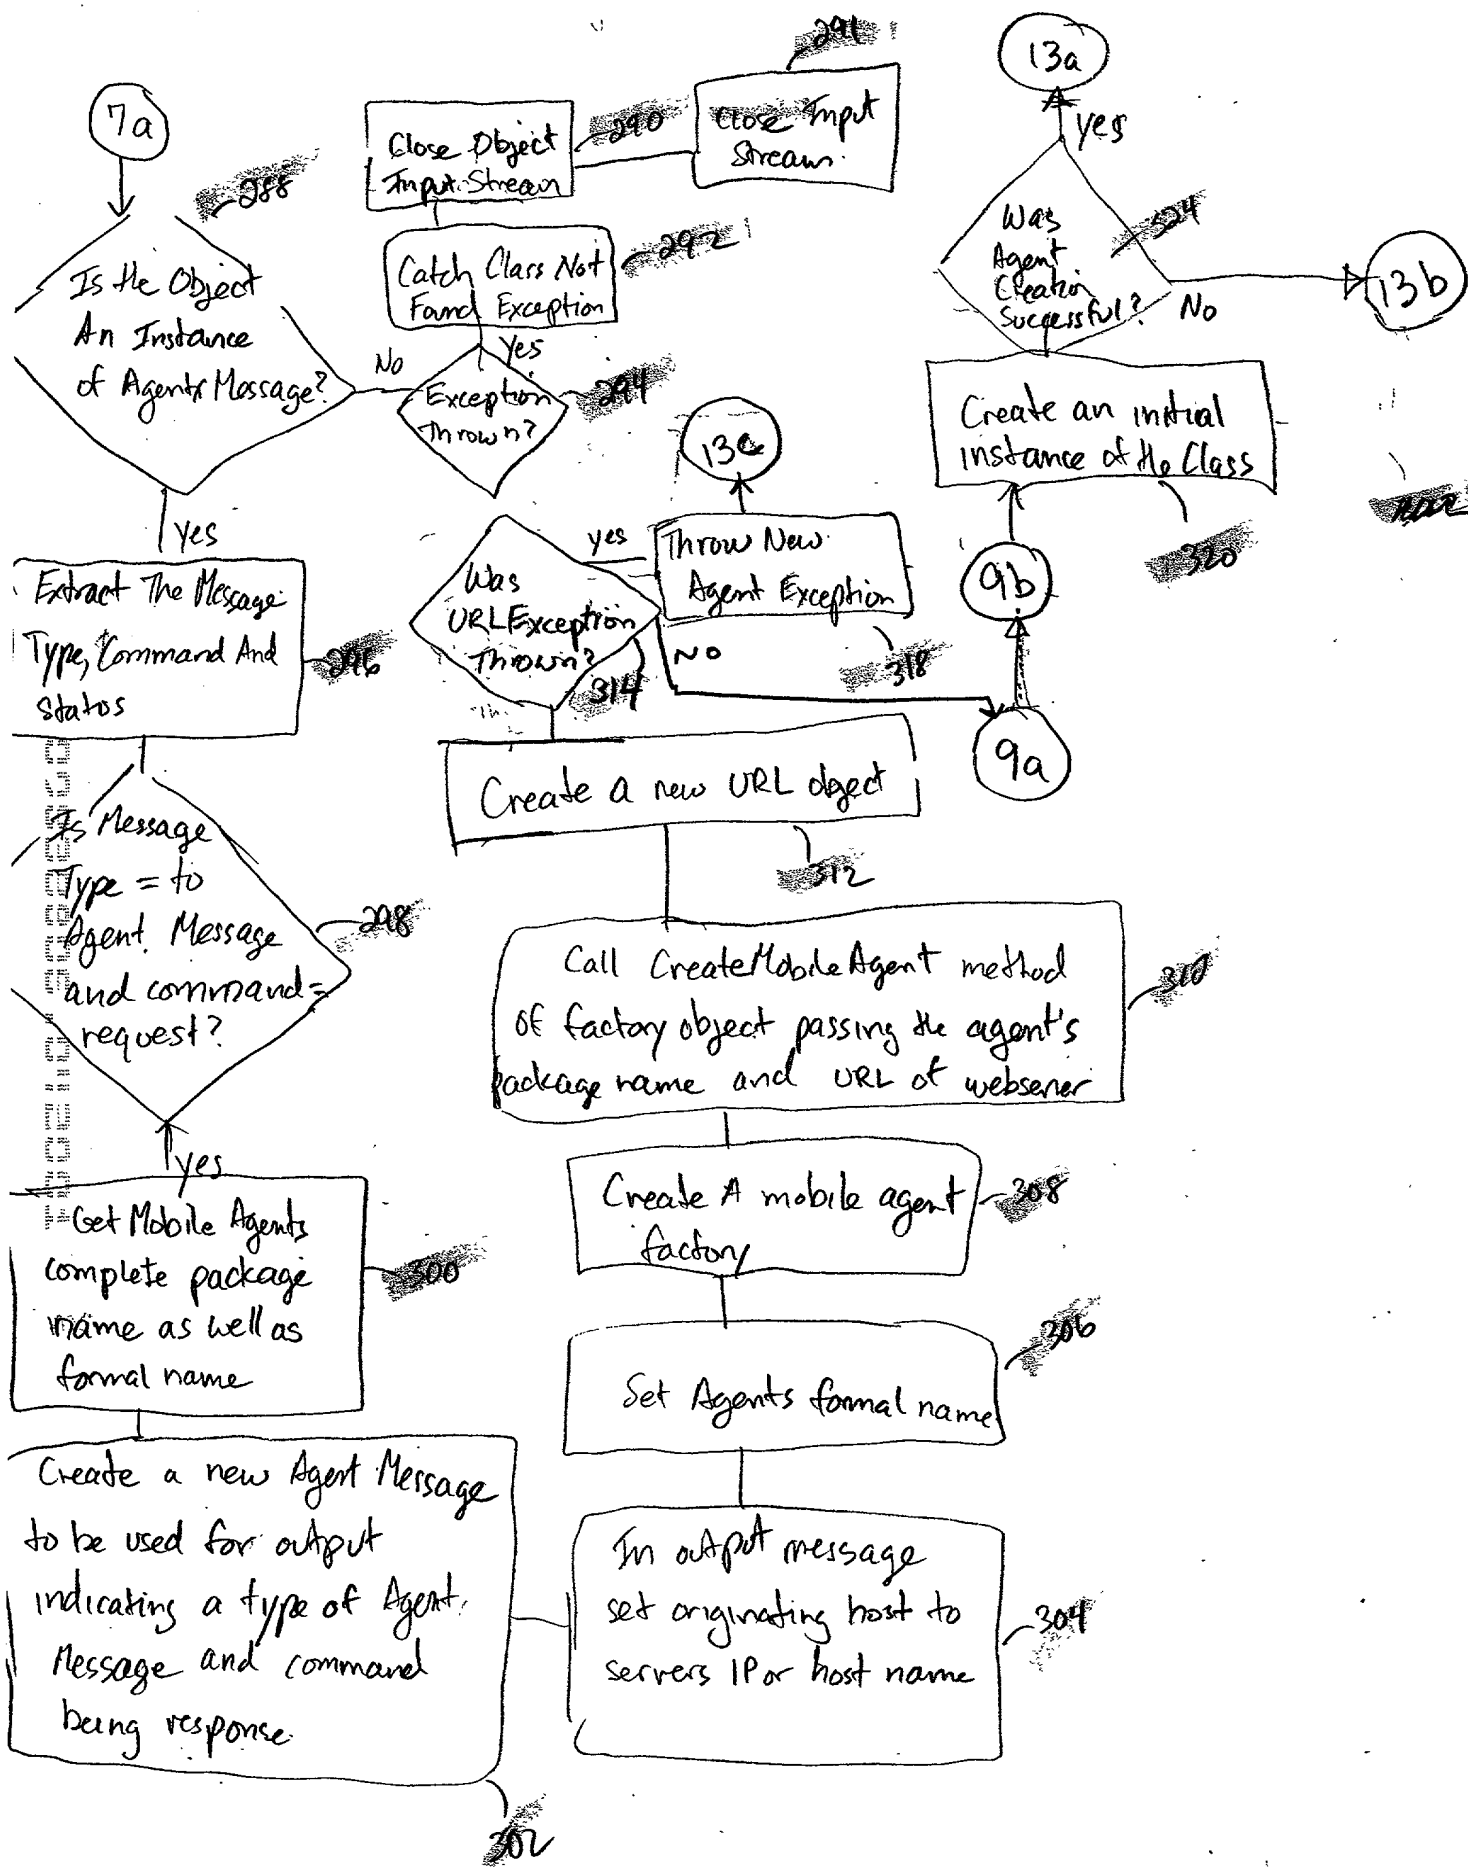 7a
288
Is the Object
An Instance
of Agents Message?
No
yes
Close Object
Input Stream
290
291
Close Input
Stream
Catch Class Not
Found Exception
292
Yes
Exception
Thrown?
294
Extract The Message
Type, Command And
status
296
Is Message
Type = to
Agent Message
and command =
request?
298
yes
Get Mobile Agents
complete package
name as well as
formal name
300
Create a new Agent Message
to be used for output
indicating a type of Agent
Message and command
being response
302
In output message
set originating host to
servers IP or host name
304
Set Agents formal name
306
Create A mobile agent
factory
308
Call CreateMobileAgent method
of factory object passing the agent's
package name and URL of webserver
310
Create a new URL object
312
Was
URLException
Thrown?
314
yes
NO
Throw New
Agent Exception
318
13c
9a
9b
Create an initial
instance of the Class
320
Was
Agent
Creation
Successful?
324
yes
13a
No
13b